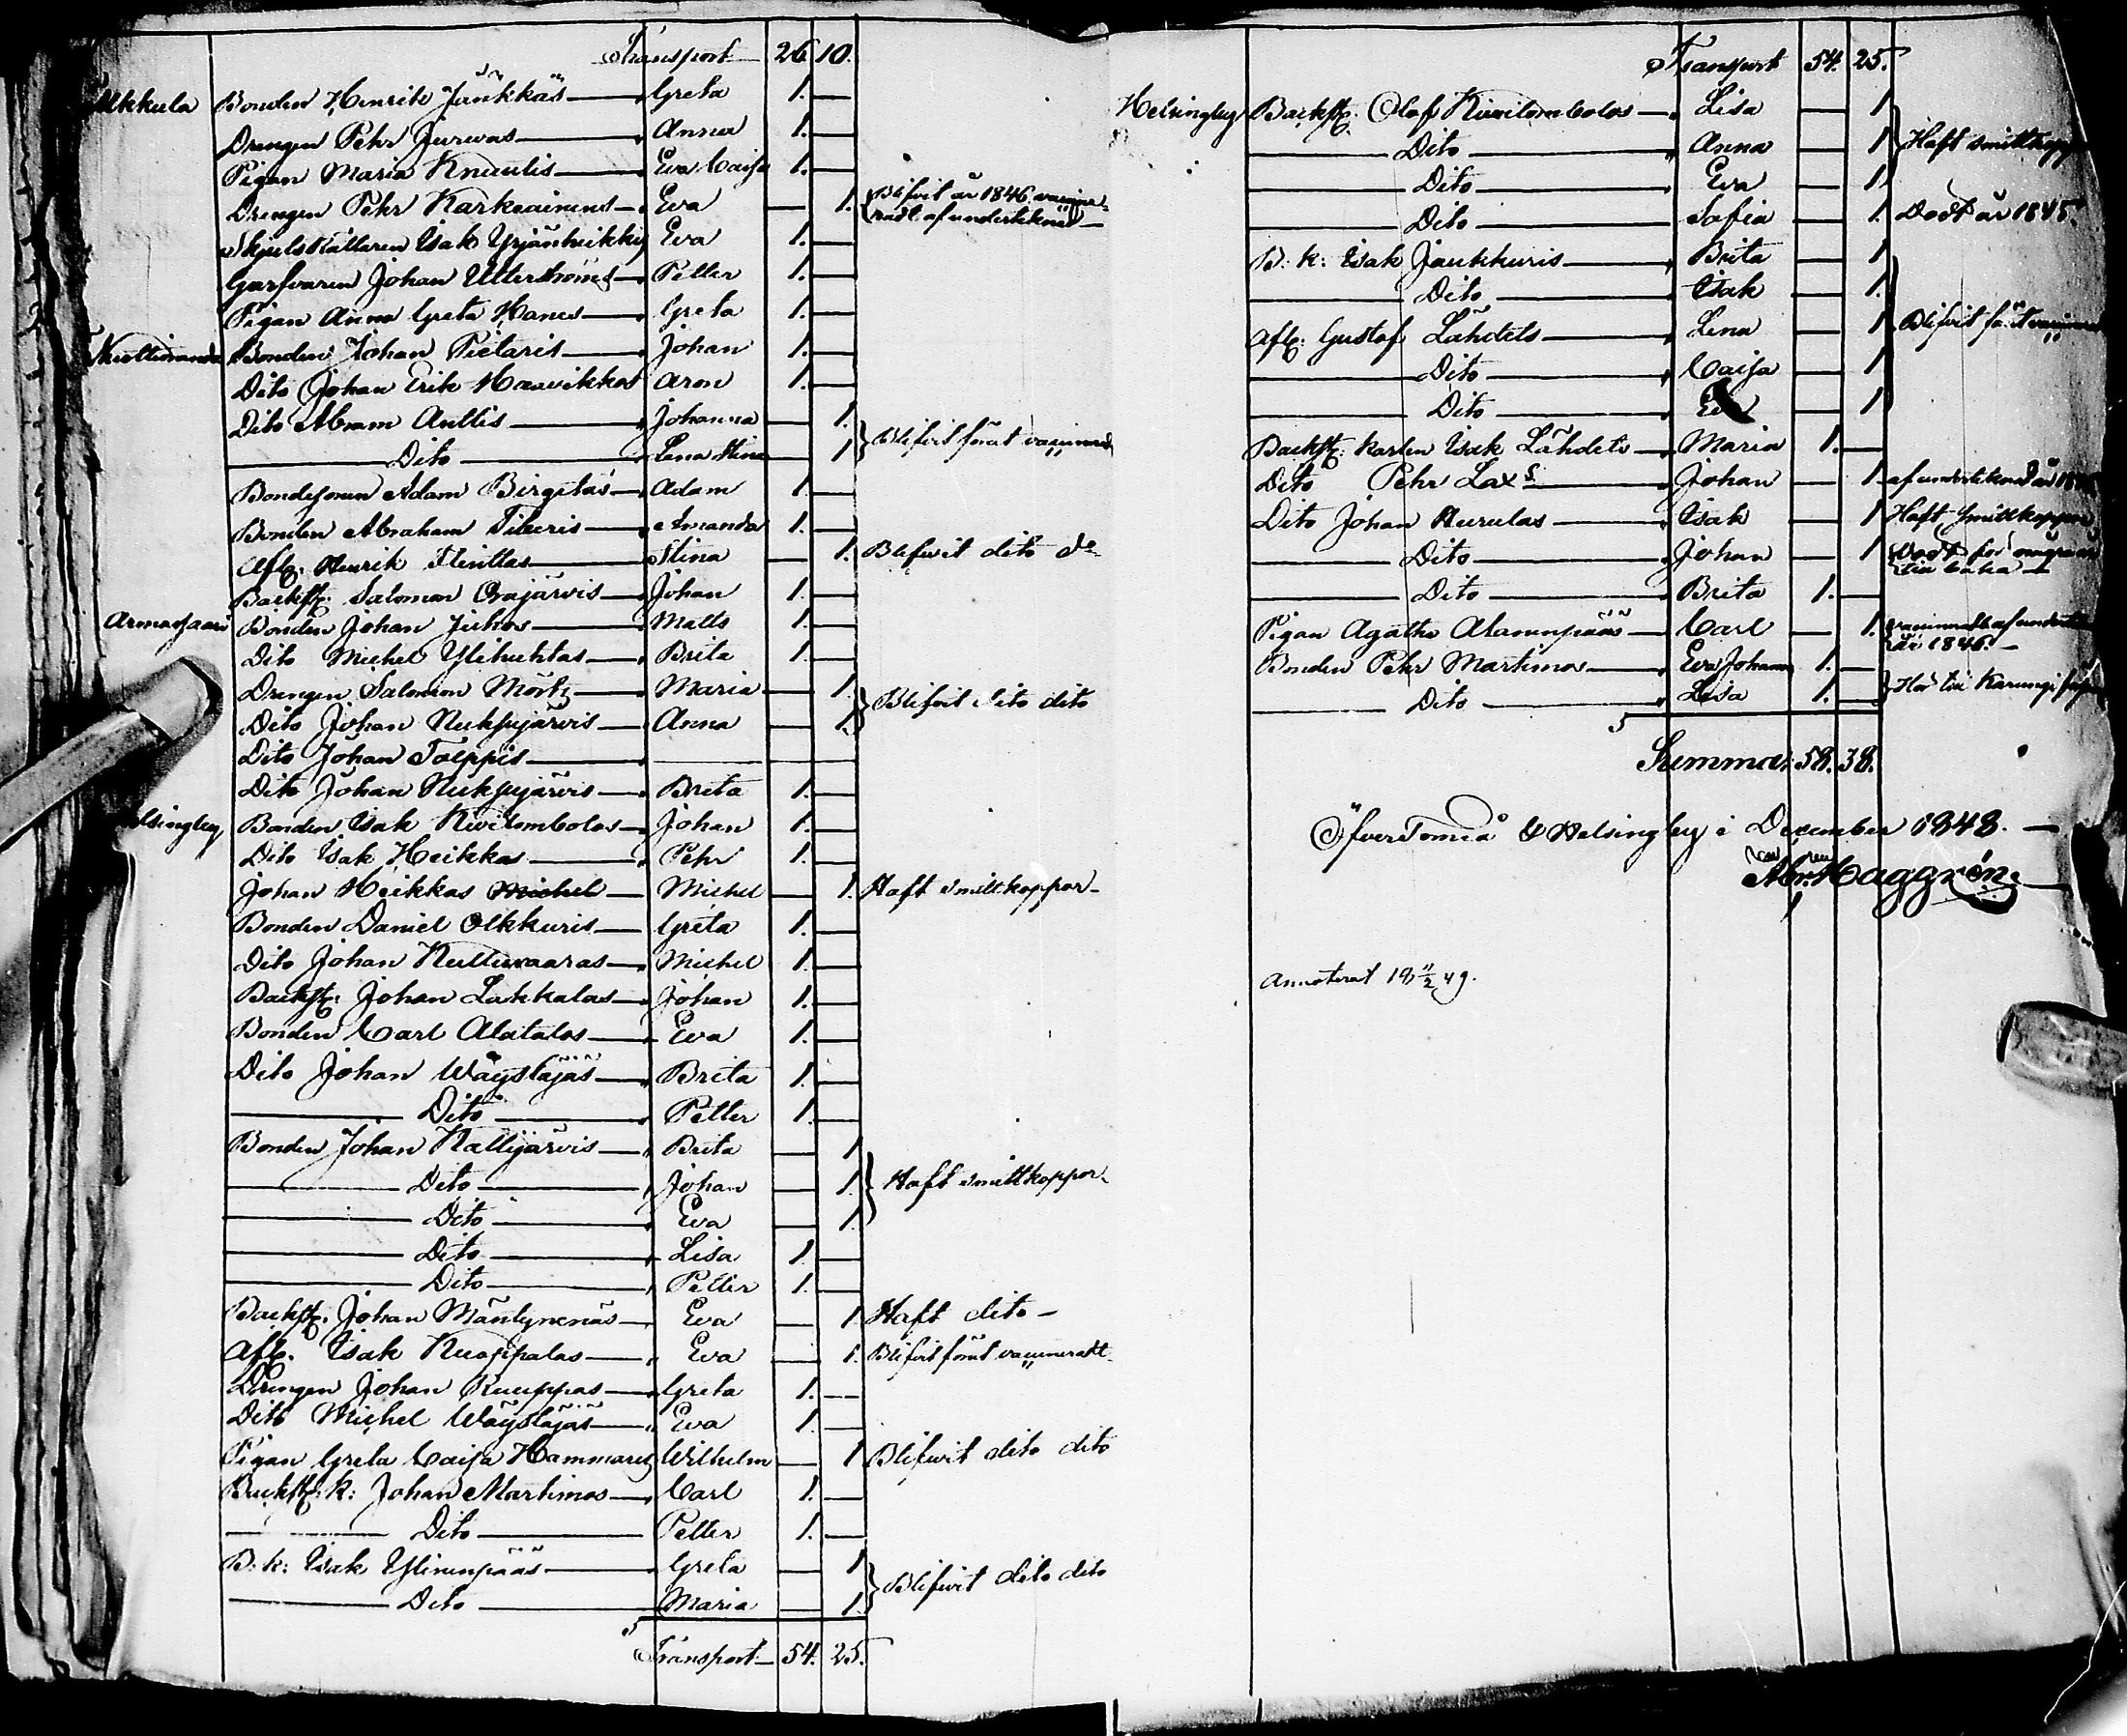 Transport 26 10.
Alkkula Bonden Henrik Jänkkäs Greta 1.
Drengen Pehr Jurvas Anna 1.
Pigan Maria Knuutis Eva Caisa 1.
Drengen Pehr Karkeainens Eva 1. Blifvit år 1846 vaccine-
radt af underteknad
Skjutsrättaren Isak Yrjänheikky Eva 1.
Garfvaren Johan Ullerströms Petter 1.
Pigan Anna Greta Hanes Greta 1.
Kuoltiorande Bonden Johan Pietaris Johan 1.
Dito Johan Erik Haavikkos Aron 1.
Dito Abram Anttis Johanna 1.
Dito Lena Stina 1 Blifvit förut vaccinerad
Bondesonen Adam Birgitas Adam 1.
Bonden Abraham Tiburis Amanda 1.
Afl. Henrik Flinttas Stina 1. Blefwit dito do
Backst: Salomon Orajärvis Johan 1.
Armassaari Bonden Johan Juhos Matts 1.
Dito Michel Ylihuhtas Brita 1.
Drengen Salomon Mörtz Maria 1
Dito Johan Neitsyjärvis Anna 1. Blifvit dito dito
Dito Johan Tolppis
Dito Johan Neitsyjärvis Brita 1.
Helsingby Bonden Isak Kivilombolos Johan 1.
Dito Isak Heikkas Pehr 1.
Johan Heikkas Michel Michel 1. Haft smittkoppor
Bonden Daniel Olkkuris Greta 1.
Dito Johan Kultuvaaras Michel 1.
Backst: Johan Lakkalas Johan 1.
Bonden Carl Alatalos Eva 1.
Dito Johan Wäystäjäs Brita 1.
Dito Petter 1.
Bonden Johan Kallijärvis Brita 1
Dito Johan 1. Haft smittkoppor
Dito Eva 1.
Dito Lisa 1.
Dito Petter 1.
Backst: Johan Mäntynenäs Eva 1 Haft dito
Afl. Isak Kuoppalas Eva 1. Blifvit förut vaccineradt
Drengen Johan Kuuppas Greta 1.
Dito Michel Wäystäjäs Eva 1.
Pigan Greta Caisa Hammares Wilhelm 1 Blifwit dito dito
Backst: k: Johan Martimos Carl 1.
Dito Petter 1.
B: k: Isak Ylinenpääs Greta 1
Dito Maria 1. Blifwit dito dito
Transport 54. 25.
Transport 54. 25.
Helsingby Backst: Olof Kivilombolos Lisa 1
Dito Anna 1 Haft smittkopp
Dito Eva 1
Dito Sofia 1. Död år 1845.
B: k: Isak Jaukkuris Brita 1
Dito Isak 1.
Afl: Gustaf Lähdets Lena 1 Blifvit förut
Dito Caisa 1
Dito Eva 1
Backst: karlen Isak Lähdets Maria 1.
Dito Pehr Lax's Johan 1 af underteknad år
Dito Johan Hurulas Isak 1 Haft smittkoppor
Dito Johan 1 Död för
Dito Brita 1.
Pigan Agatha Alanenpääs Carl 1. vaccineradt af
år 1846.
Bonden Pehr Martimos Eva Johanna 1.
Dito Lisa 1. Hör till Karungi
Summa: 58. 38.
ÖfverTorneå & Helsingby i December 1848.
Abr: Haggrén
Annoterat 18 11/2 49.